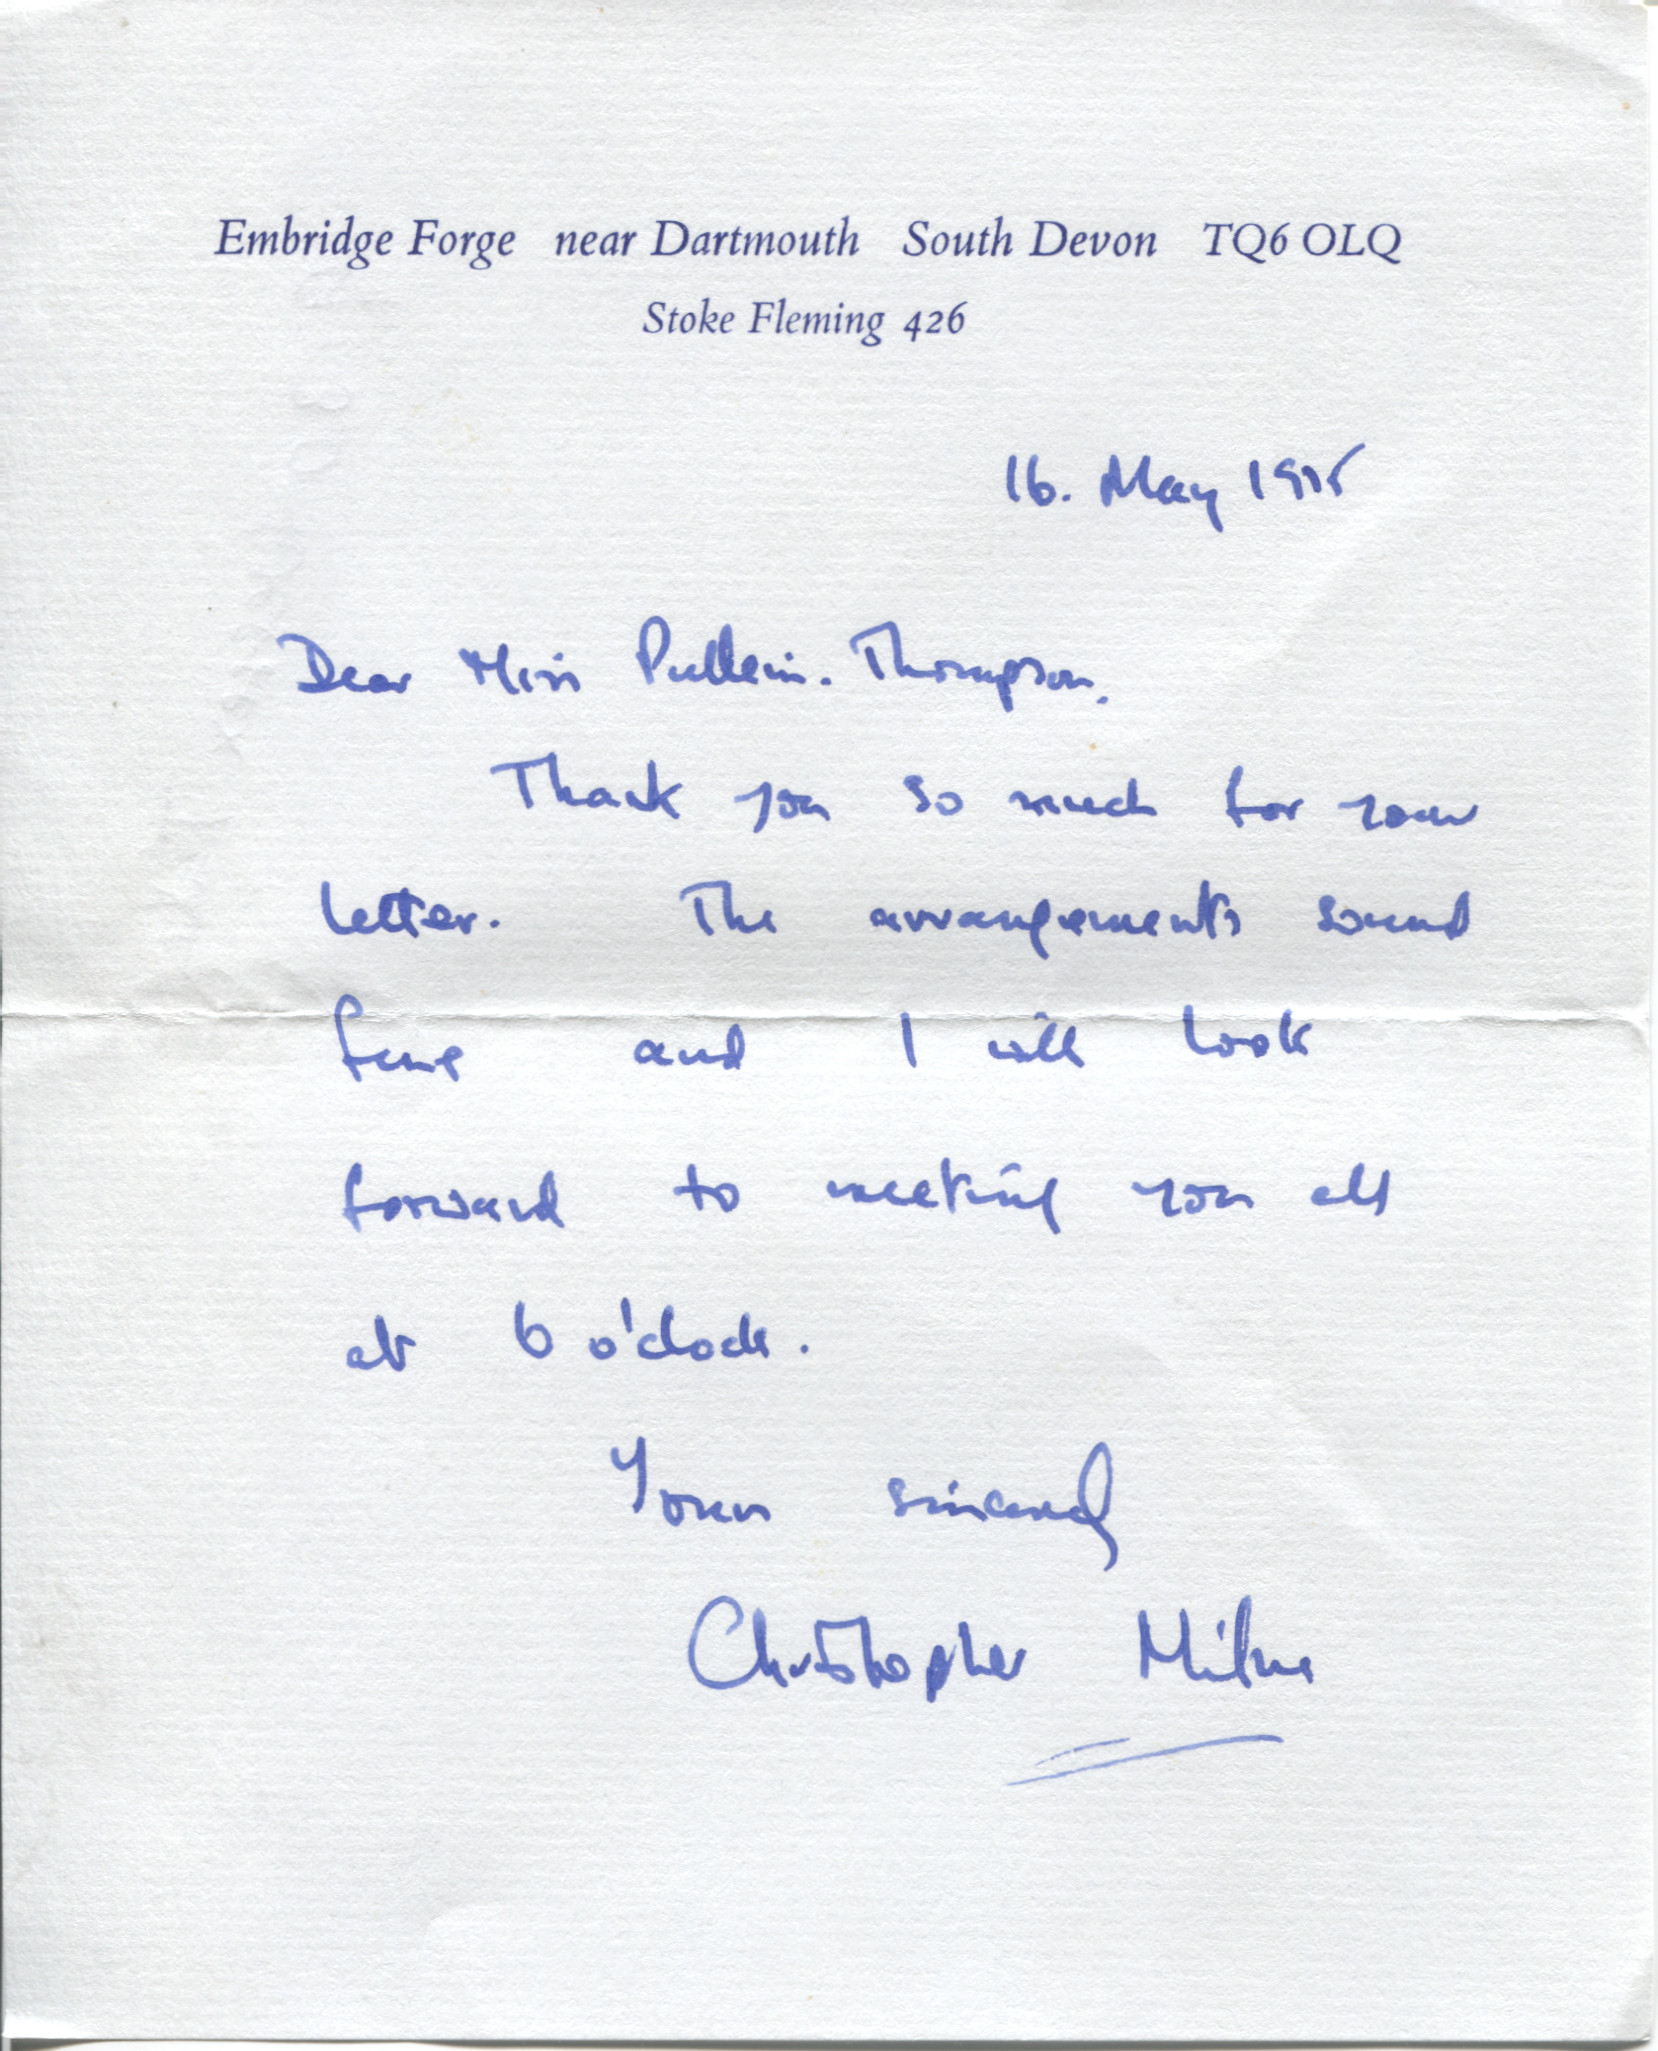 Embridge Forge near Dartmouth South Devon TQ6 OLQ
Stoke Fleming 426
16. May 1975
Dear Miss Pullein-Thompson,
Thank you so much for your
letter. The arrangements sound
fine and I will look
forward to meeting you all
at 6 o'clock.
Yours sincerely
Christopher Milne